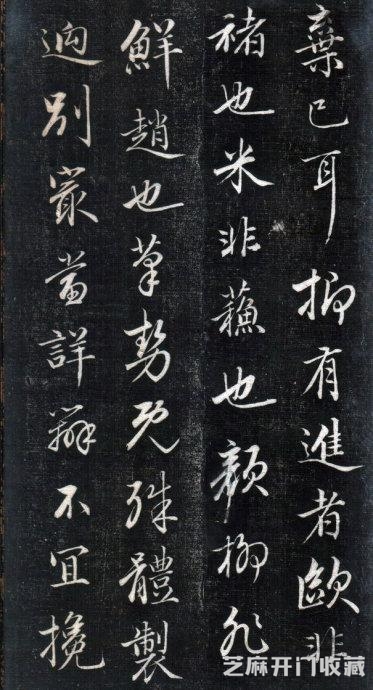 棄已耳抑有進者歐非
褚也米非蘓也顏柳非
鮮趙也筆勢既殊體製
迥別最當詳辨不宜攙
芝麻开门收藏